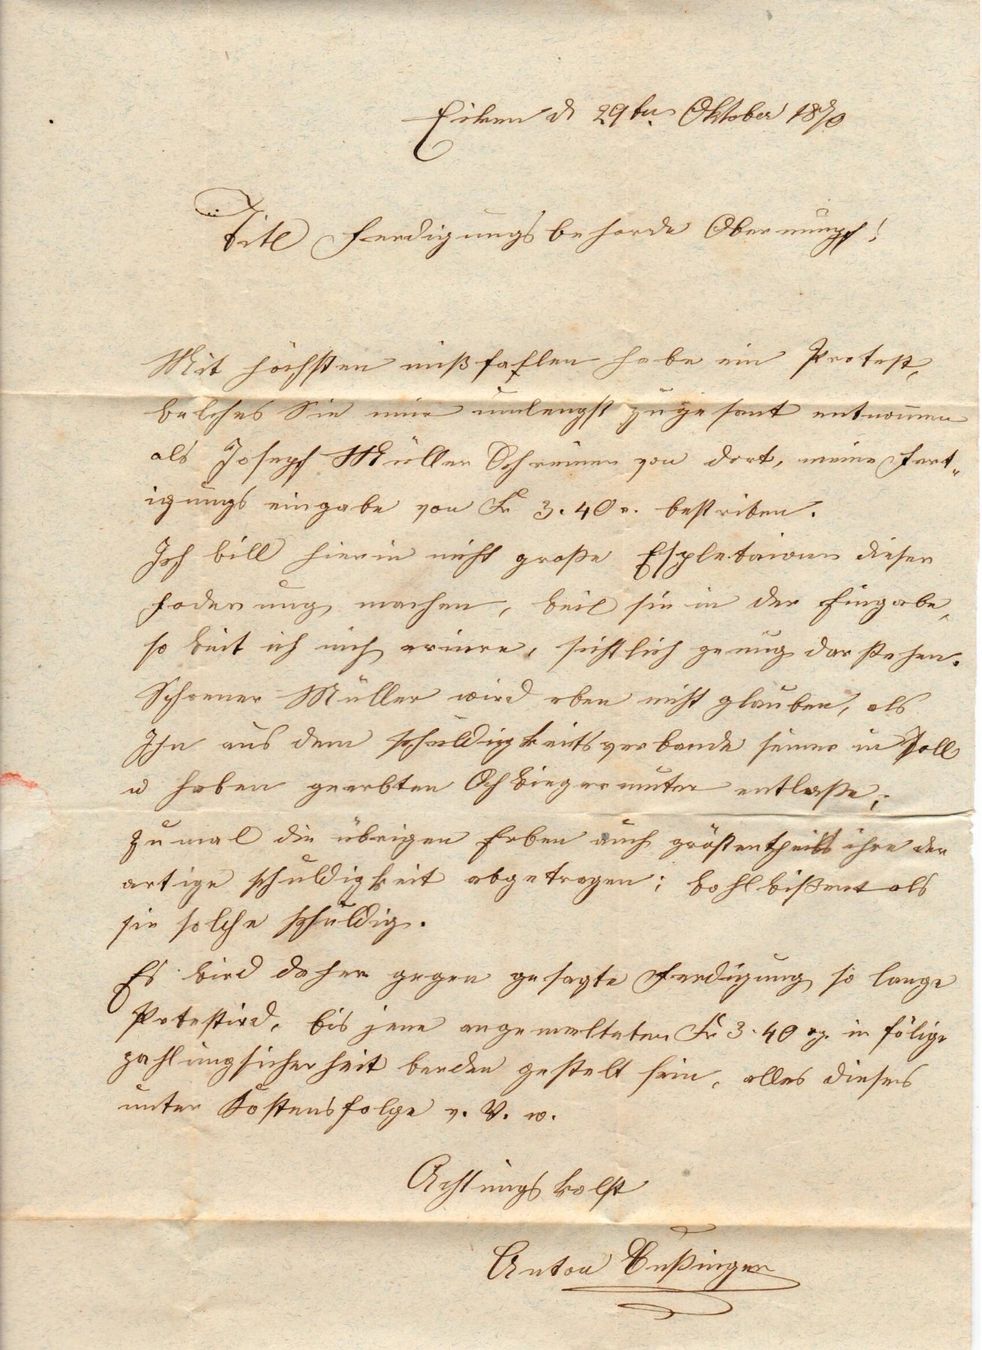 Eiken d 29ten Oktober 1870
Titl Ferdigungsbehorde Obermumpf!
Mit höchsten mißfahlen habe ein Protest,
welches Sie mir unlengst zugesant entnommen
als Joseph Müller Schreiner von dort, meine Fert-
igungs eingabe von Fr 3.40 r. bestriten.
Ich will hierin nicht große dieser
Foderung machen, weil sie in der Eingabe,
so weit ich mich erinre, sichtlich genug darstehen.
Müller wird eben nicht glauben, als
Ihn aus dem schuldigkeitsverbande seiner in Soll
u haben geerbten Schwiegermuter entlaße;
zumal die übrigen Erben auch gröstentheils ihre der
artige schuldigkeit abgetragen; wohl wißent als
sie solche schuldig.
Es wird daher gegen gesagte Ferdigung so lange
Protestird, bis jene angemelteten Fr 3.40 rp. in fölige
zahlungsicherheit werden gestelt sein, alles dieses
unter Kostensfolge v. V. w.
Achtungsvolst
Anton